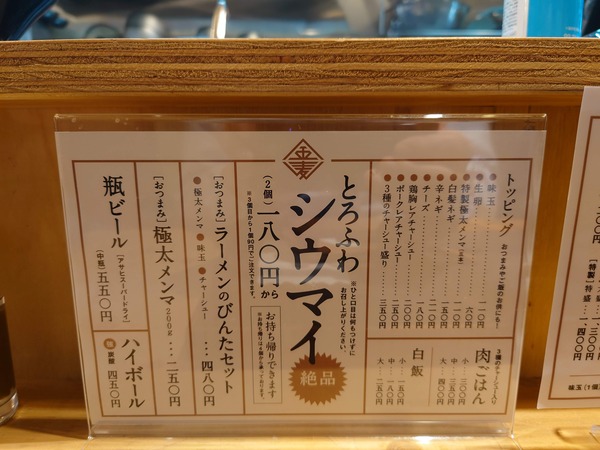 トッピング おつまみやご飯のお供にも!
味玉 一一〇円
生卵 六〇円
特製極太メンマ
白髪ネギ 一一〇円
辛ネギ
チーズ
鶏胸レアチャーシュー
ポークレアチャーシュー 二〇〇円
3種のチャーシュー盛り 三五〇円
3種のチャーシュー入り
肉ごはん
小 三〇〇円
中 三五〇円
大 四〇〇円
白飯
小 一五〇円
中 二〇〇円
大 二五〇円
とろふわ
シウマイ
絶品
※ひと口目は何もつけずに
お召し上がりください。
(2個)一八〇円から
※3個目から1個90円でご注文できます。
お持ち帰りできます
[おつまみ]ラーメンのびんたセット
極太メンマ 味玉 チャーシュー
四八〇円
[おつまみ]極太メンマ200g 二五〇円
瓶ビール [アサヒスーパードライ]
(中瓶)五五〇円
ハイボール
四五〇円
味玉(1個)